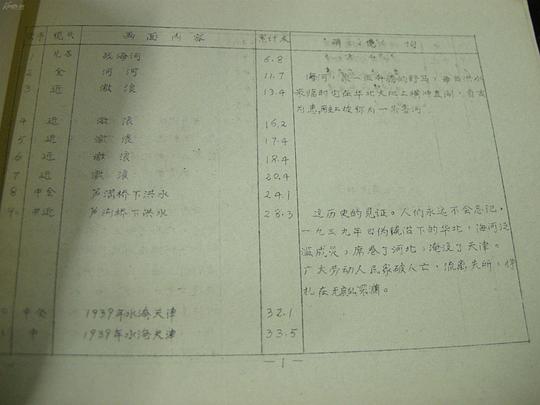 号 镜头 画面内容 累计尺 解说词
1 战海河 6.8
2 全 河 河 11.7 海河,象一匹奔腾的野马,每当洪水
3 近 激浪 13.4 来临时它在华北大地上横冲直闯,自古
为患,
4 近 激浪 16.2
5 近 激浪 17.4
6 近 激浪 18.4
7 近 激浪 20.4
8 中全 芦沟桥下洪水 24.1
9 芦沟桥下洪水 28.3 这历史的见证。人们永远不会忘记,
一九三九年日伪统治下的华北,海河泛
滥成灾;席卷了河北;淹没了天津。
广大劳动人民家破人亡,流离失所,挣
扎在
中全 1939年水淹天津 32.1
中 1939年水淹天津 33.5
—1—